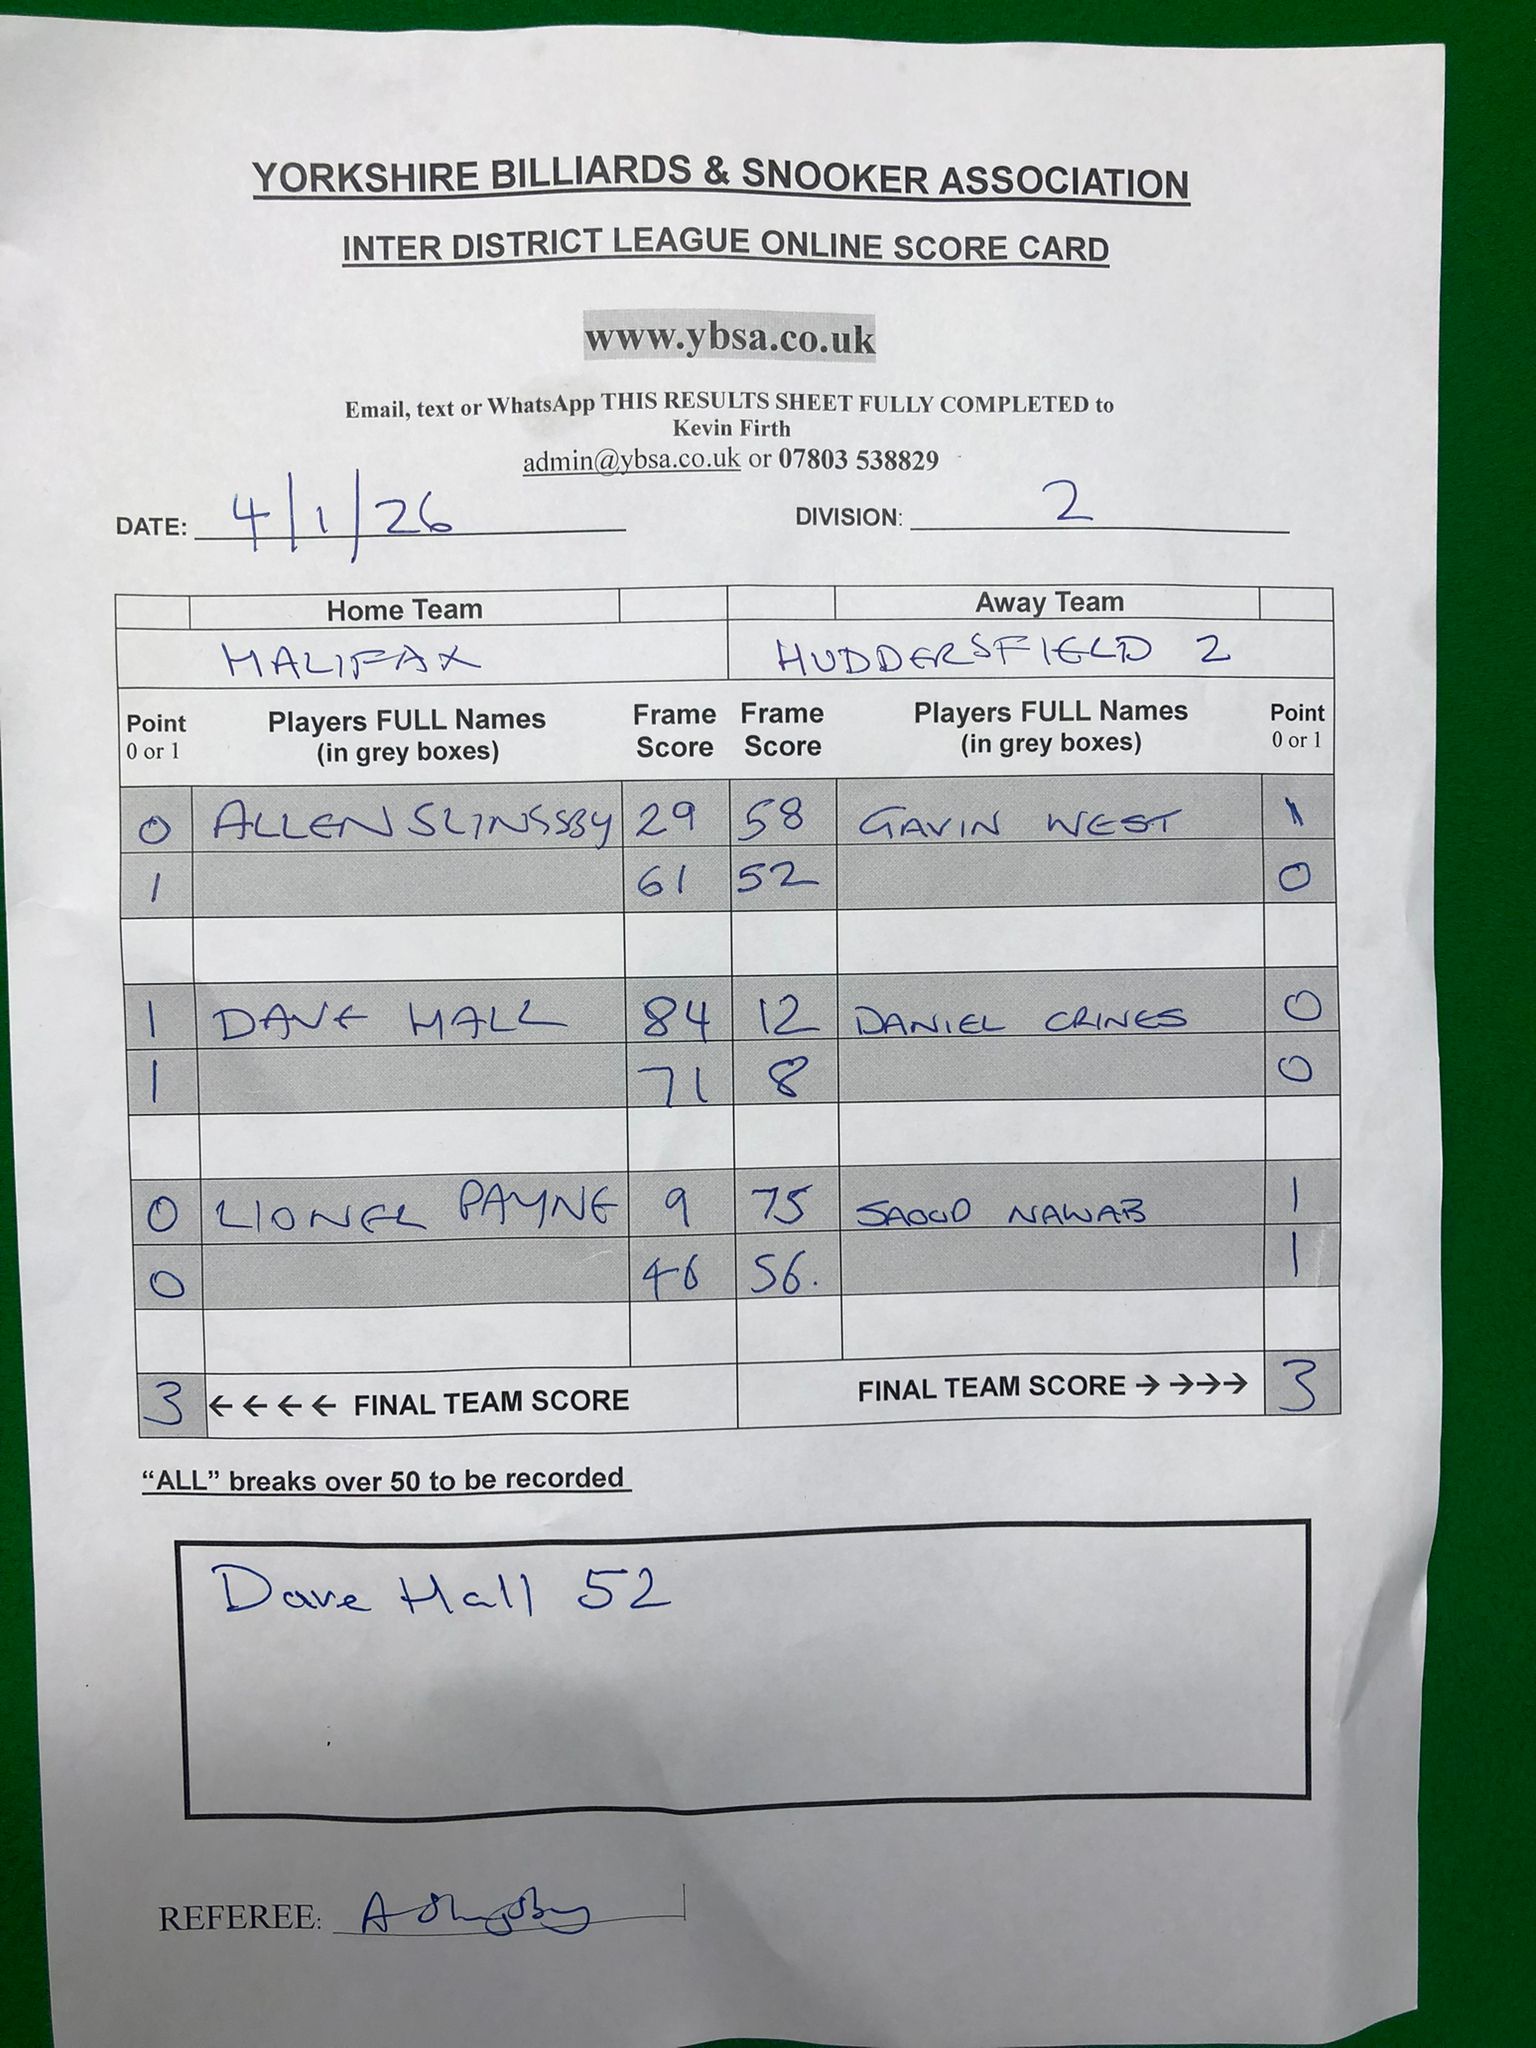 YORKSHIRE BILLIARDS & SNOOKER ASSOCIATION
INTER DISTRICT LEAGUE ONLINE SCORE CARD
www.ybsa.co.uk
Email, text or WhatsApp THIS RESULTS SHEET FULLY COMPLETED to
Kevin Firth
admin@ybsa.co.uk or 07803 538829
DATE: 4/1/26 DIVISION: 2
Home Team Away Team
HALIFAX HUDDERSFIELD 2
Point Players FULL Names Frame Frame Players FULL Names Point
0 or 1 (in grey boxes) Score Score (in grey boxes) 0 or 1
0 ALLEN SLINSSBY 29 58 GAVIN WEST 1
1 61 52 0
1 DAVE HALL 84 12 DANIEL CRINES 0
1 71 8 0
0 LIONEL PAYNE 9 75 SAOUD NAWAB 1
0 46 56. 1
3 ←←←← FINAL TEAM SCORE FINAL TEAM SCORE →→→→ 3
“ALL” breaks over 50 to be recorded
Dave Hall 52
REFEREE: A